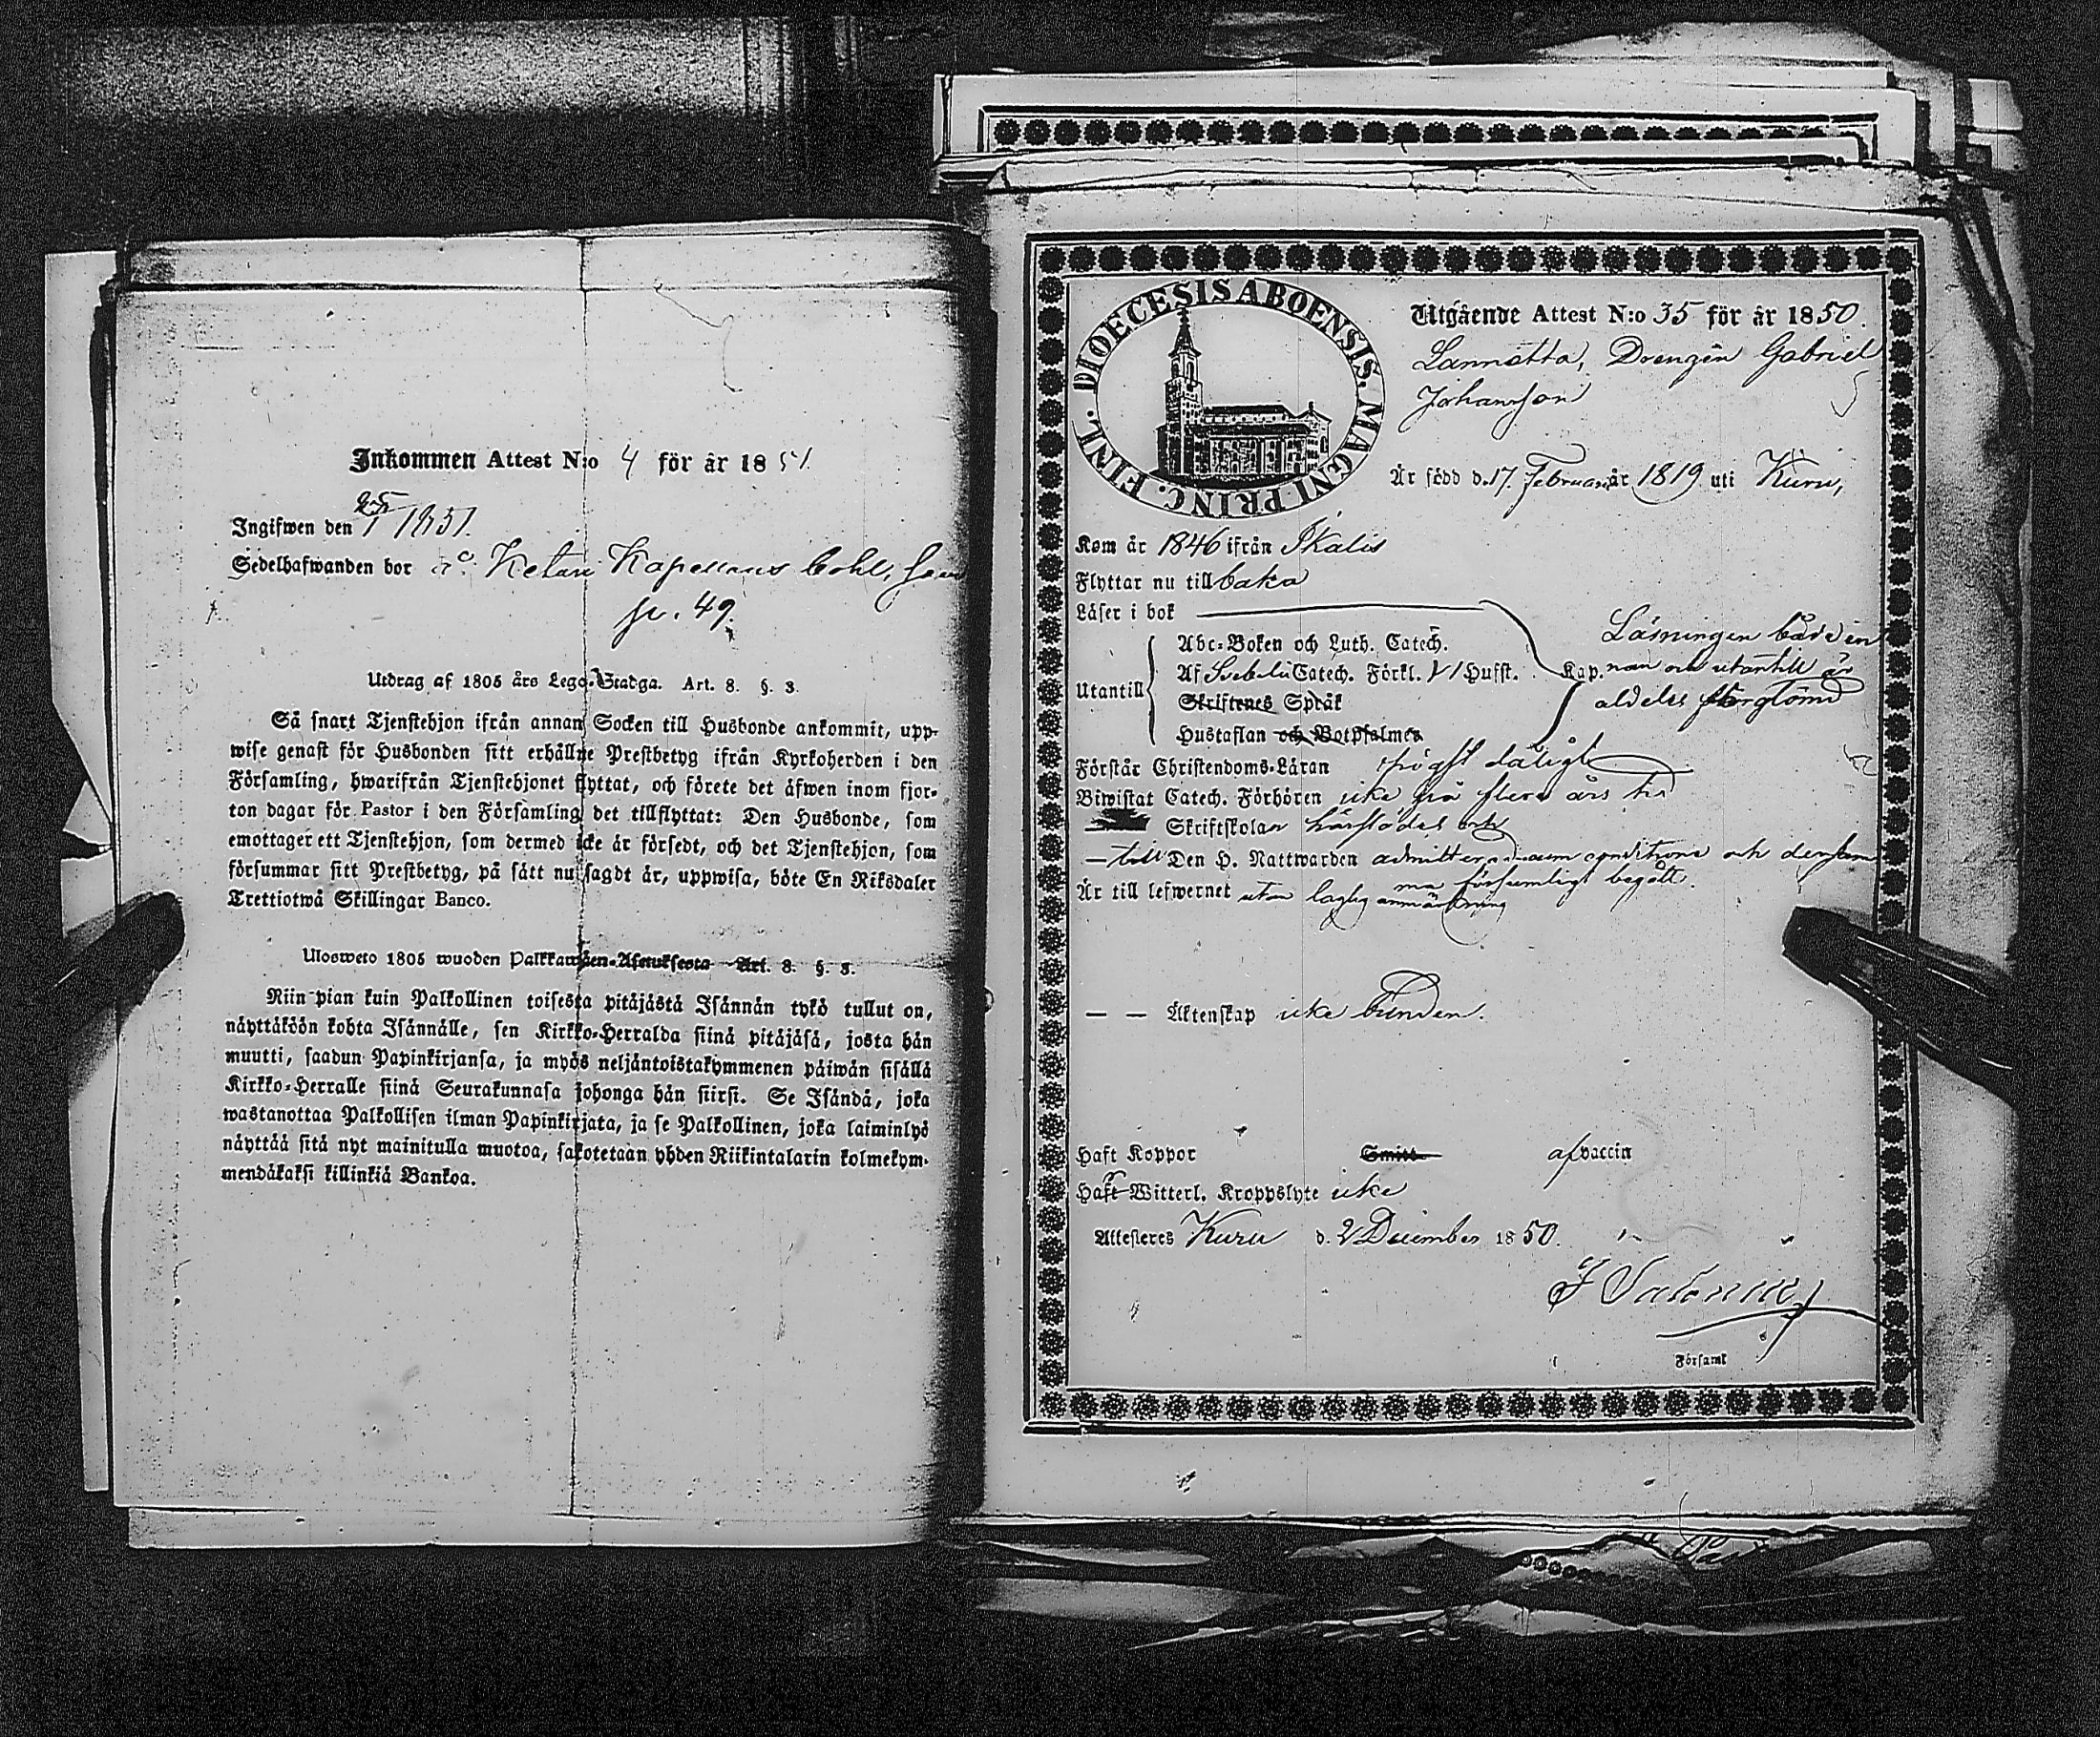 Inkommen Attest N:o 4 för år 1851.
Ingifwen den 25/1 1851.
Sedelhafwanden bor å Ketari Kapellans bohl,
p. 49.
Utdrag af 1805 års Lego-Stadga. Art. 8. §. 3.
Så snart Tjenstehjon ifrån annan Socken till Husbonde ankommit, upp-
wise genast för Husbonden sitt erhållne Prestbetyg ifrån Kyrkoherden i den
Församling, hwarifrån Tjenstehjonet flyttat, och förete det äfwen inom fjor-
ton dagar för Pastor i den Församling det tillflyttat: Den Husbonde, som
emottager ett Tjenstehjon, som dermed icke är försedt, och det Tjenstehjon, som
försummar sitt Prestbetyg, på sätt nu sagdt är, uppwisa, böte En Riksdaler
Trettiotwå Skillingar Banco.
Ulosweto 1805 wuoden Palkkawäen-Asetuksesta Art. 8. §. 3.
Niin pian kuin Palkollinen toisesta pitäjästä Isännän tykö tullut on,
näyttäköön kohta Isännälle, sen Kirkko-Herralda siinä pitäjäsä, josta hän
muutti, saadun Papinkirjansa, ja myös neljäntoistakymmenen päiwän sisällä
Kirkko-Herralle siinä Seurakunnasa johonga hän siirsi. Se Isändä, joka
wastanottaa Palkollisen ilman Papinkirjata, ja se Palkollinen, joka laiminlyö
näyttää sitä nyt mainitulla muotoa, sakotetaan yhden Riikintalarin kolmekym-
mendäkaksi killinkiä Bankoa.
DIOECESIS ABOENSIS. MAGNI PRINC. FINL.
Utgående Attest N:o 35 för år 1850.
Lannætta, Drengen Gabriel
Johansson
Är född d. 17. Februari år 1819 uti Kuru,
Kom år 1846 ifrån Ikalis
Flyttar nu tillbaka
Läser i bok
Abc-Boken och Luth. Catech.
Utantill
Af Svebelii Catech. Förkl. VI Hufst. Kap.
Skriftenes Språk
Hustaflan och Botpsalmer
Läsningen både in
nan och utantill är
aldeles förglömd
Förstår Christendoms-Läran högst dåligt
Biwistat Catech. Förhören icke på flera års tid
Skriftskolan
— till Den H. Nattwarden admitteras conditione och densam
ma försumligt begått.
Är till lefwernet utan laglig anmärkning
— — Äktenskap icke bunden.
Haft Koppor Smitt. af vaccin
Haft Witterl. Kroppslyte icke
Attesteras Kuru d. 2 December 1850.
Församl